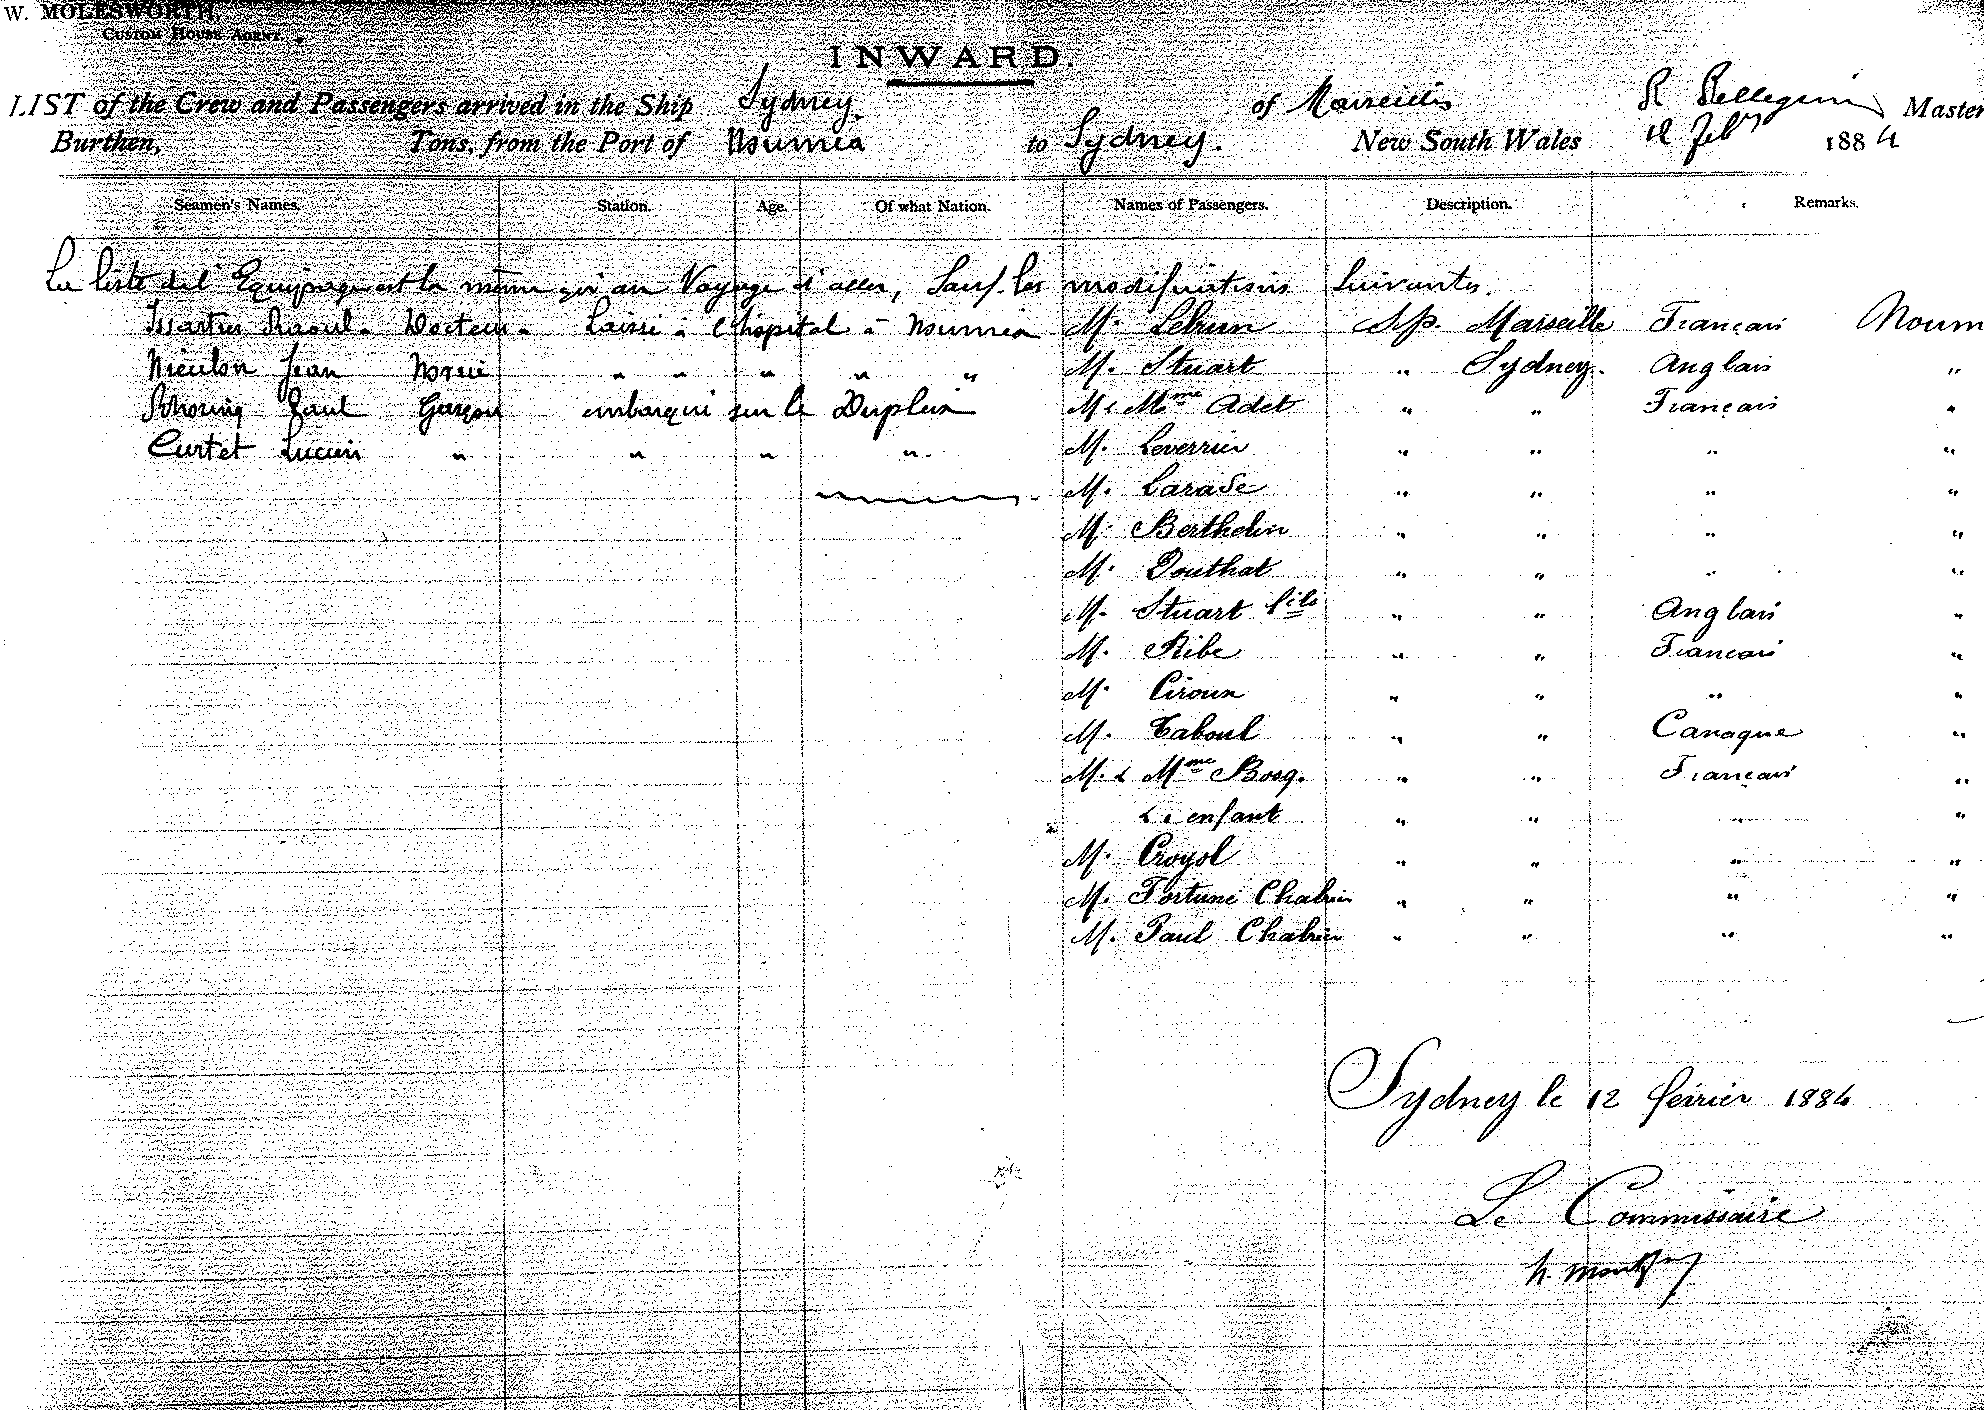 W. MOLESWORTH,
CUSTOM HOUSE AGENT.
INWARD.
LIST of the Crew and Passengers arrived in the Ship Sydney of Marseilles R Pellegrin Master
Burthen, Tons, from the Port of Noumea to Sydney. New South Wales 12 feby 1884
Seamen's Names. Station. Age. Of what Nation. Names of Passengers. Description. Remarks.
La liste de l'Equipage est la même qu'au Voyage d'aller, Sauf les modifications Suivantes.
Raoul. Docteur. Laissé à l'hopital à Noumea M. Lebrun Dep. Marseille Francais Noum
Jean Novice " " " " " M. Stuart " Sydney. Anglais "
Paul Garçon embarqué sur le Dupleix M & Mme Adet " " Francais "
Curtet Lucien " " " " M. Leverrier " " " "
M. Larade " " " "
M. Berthelin " " " "
M. Douthat " " " "
M. Stuart fils " " Anglais "
M. Ribe " " Francais "
M. Ciroun " " " "
M. Taboul " " Canaque "
M. & Mme Bosq. " " Francais "
& 1 enfant " " " "
M. Croyol " " " "
M. Fortuné Chabrin " " " "
M. Paul Chabrin " " " "
Sydney le 12 février 1884
Le Commissaire